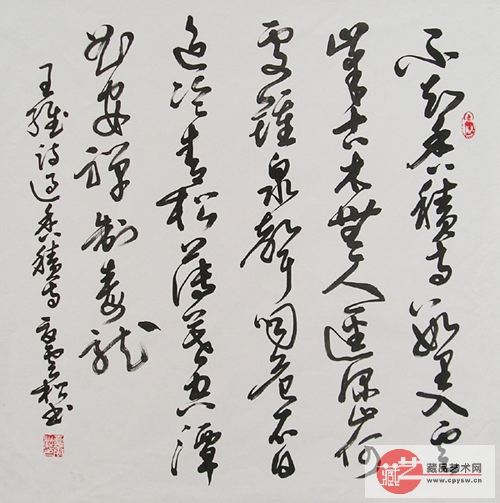 不知香積寺數里入雲
峯古木無人徑深山何
處鐘泉聲咽危石日
色冷青松薄暮空潭
曲安禪制毒龍
王維詩過香積寺雲松書
藏艺
藏品艺术网
www.cpysw.cn